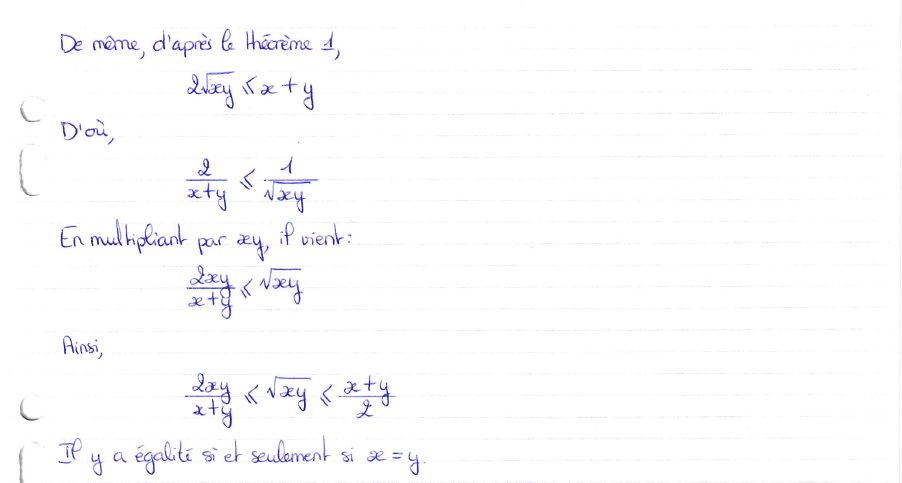 De même, d'après le théorème 1,
2√xy ⩽ x + y
D'où,
2/(x+y) ⩽ 1/√xy
En multipliant par xy, il vient :
2xy/(x+y) ⩽ √xy
Ainsi,
2xy/(x+y) ⩽ √xy ⩽ (x+y)/2
Il y a égalité si et seulement si x = y.